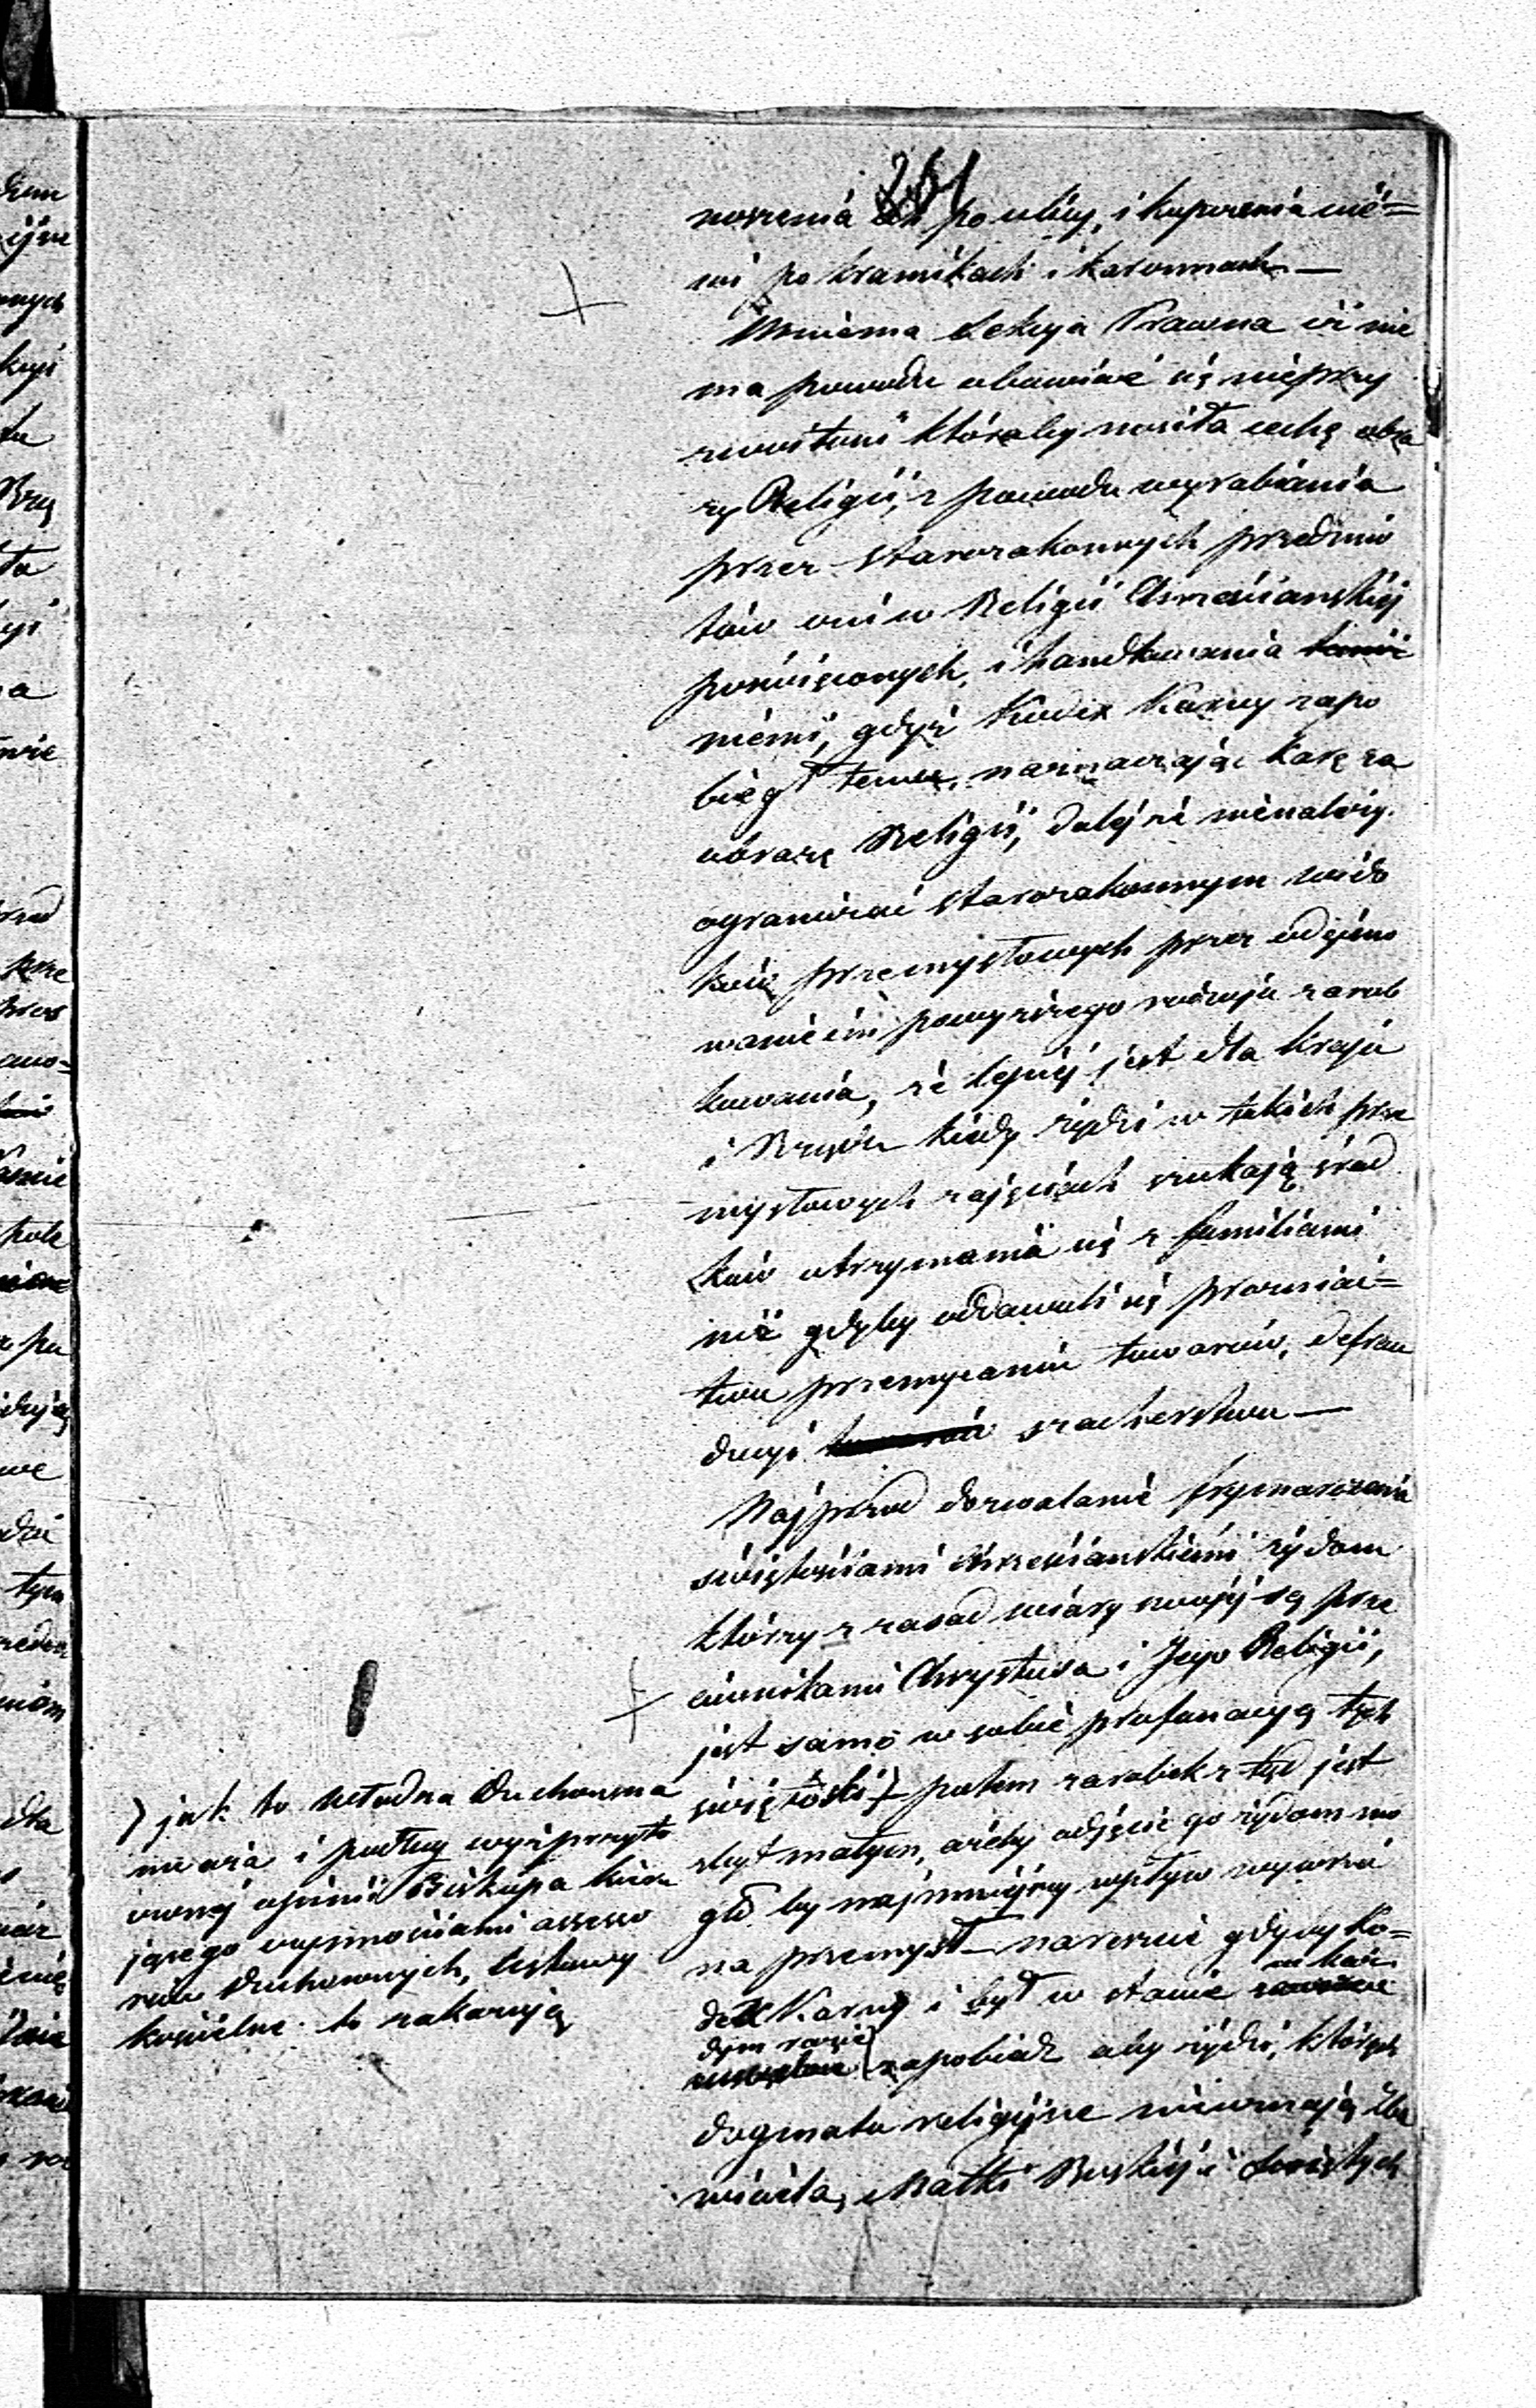 261
noszenia ich po ulicy, i kupczenia nié=
mi po kramikach i karczmach —
Mniema Sekcya Prawna iż nie
ma powodu obawiać się nieprzy
zwoitości któraby nosiła cechę obra
zy Religii, z powodu wyrabiania
przez starozakonnych przedmio
tów czci w Religii Chrześciańskiéj
poświęconych, i handlowania
niémi, gdyż Kodex Karny zapo
biegł temu, naznaczając karę za
obrazę Religii, daléj że nienależy
ograniczać starozakonnym wido
ków przemysłowych przez odejmo
wanie im powyższego rodzaju zarob
kowania, że lepiéj jest dla kraju
i Rządu kiedy żydzi w takich prze
mysłowych zajęciach szukają śród
ków utrzymania się z familiami
niż gdyby oddawali się próżniac=
twu przemycaniu towarów, defrau
dacyi szacherstwu —
Najprzód dozwalanie frymarczenia
świętościami Chrześciańskiémi żydom
którzy z zasad wiary swojéj są prze
ciwnikami Chrystusa i Jego Religii,
jest samo w sobie profanacyą tych
świętości) potem zarobek z tąd jest
zbyt małym, ażeby odjęcie go żydom mo
gło by najmniejszy wpływ wywrzéć
na przemysł — nareszcie gdyby Ko=
dex Karny i był w stanie w każ
dym razie zapobiedz aby żydzi, których
dogmata religijne nieuznają Zba
wiciela, Matki Boskiéj i Świętych
) jak to Władza Duchowna
uważa i podług wyż przyto
czonej opinii Biskupa kieru
jącego czynnościami assesso
rów Duchownych, Ustawy
kościelne to zakazują